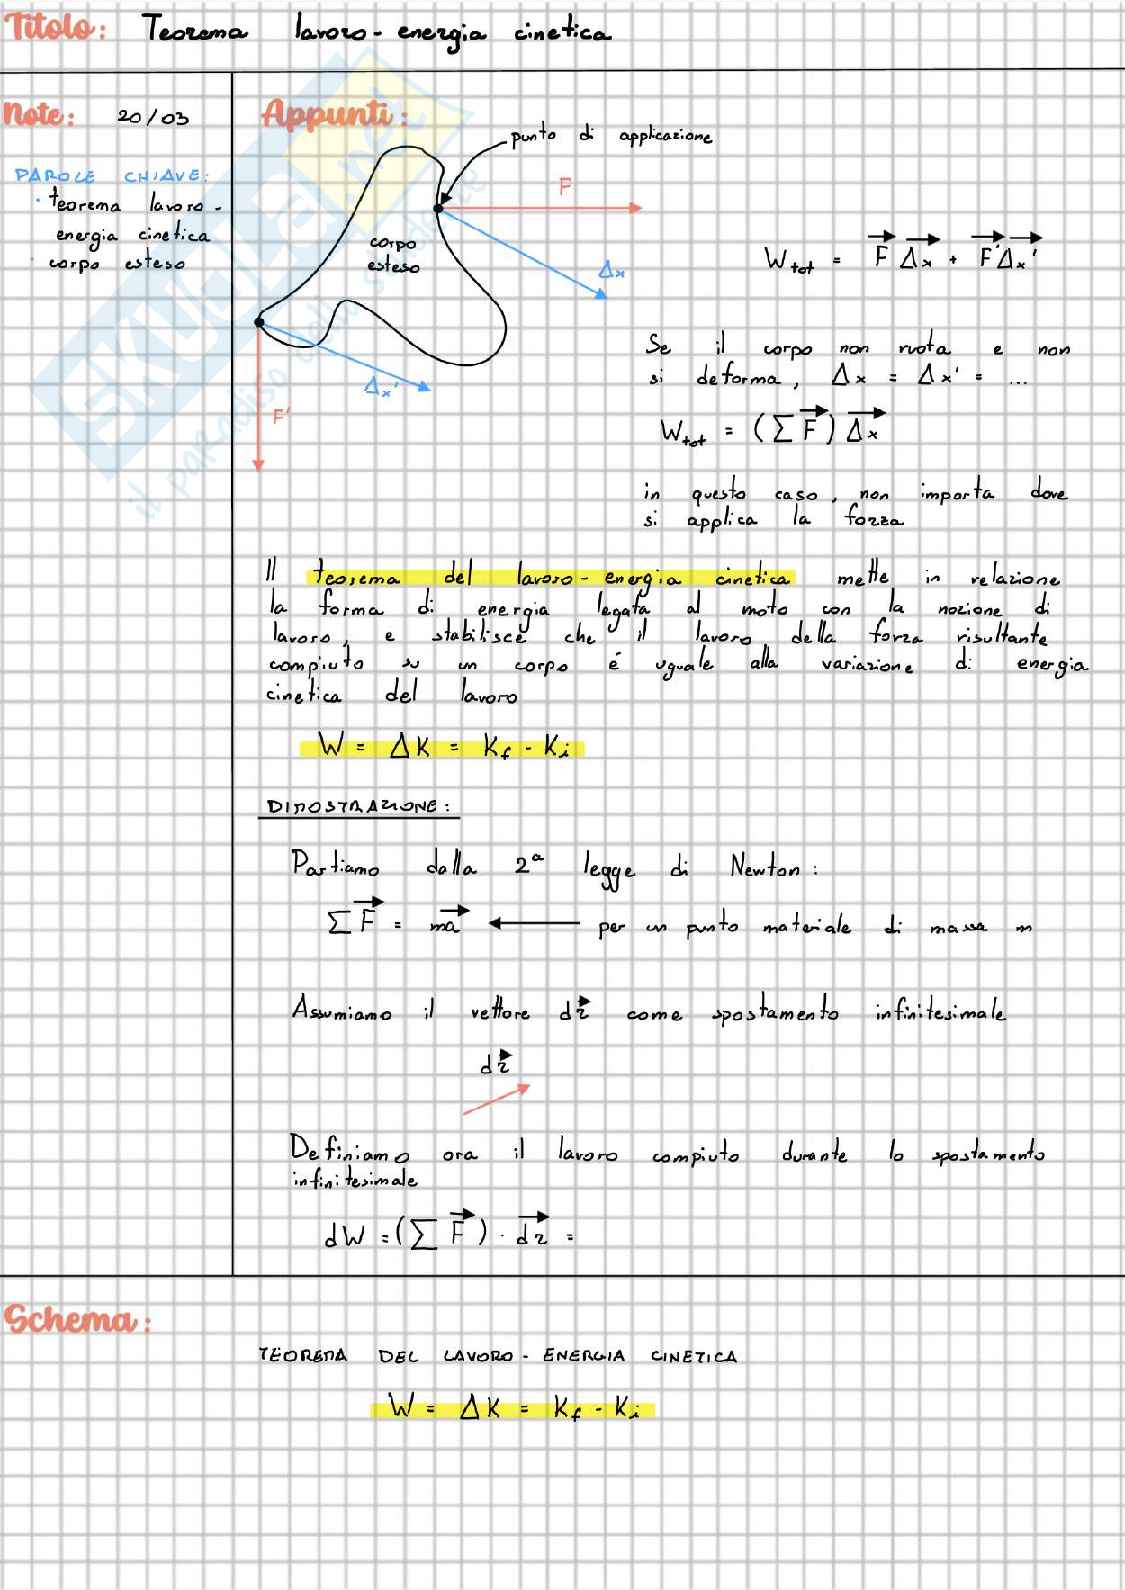 Titolo: Teorema lavoro-energia cinetica
Note: 20/03
PAROLE CHIAVE:
· teorema lavoro-
energia cinetica
· corpo esteso
Appunti:
punto di applicazione
F
corpo
esteso
Δx
Δx'
F'
W_tot = F⃗ Δx⃗ + F⃗' Δx⃗'
Se il corpo non ruota e non
si deforma, Δx = Δx' = ...
W_tot = (∑ F⃗) Δx⃗
in questo caso, non importa dove
si applica la forza
Il teorema del lavoro-energia cinetica mette in relazione
la forma di energia legata al moto con la nozione di
lavoro, e stabilisce che il lavoro della forza risultante
compiuto su un corpo é uguale alla variazione di energia
cinetica del lavoro
W = ΔK = K_f - K_i
DIMOSTRAZIONE:
Partiamo dalla 2ª legge di Newton:
∑ F⃗ = ma⃗ ← per un punto materiale di massa m
Assumiamo il vettore dr⃗ come spostamento infinitesimale
dr⃗
Definiamo ora il lavoro compiuto durante lo spostamento
infinitesimale
dW = (∑ F⃗) · dr⃗ =
Schema:
TEOREMA DEL LAVORO-ENERGIA CINETICA
W = ΔK = K_f - K_i
SKUOLA.net
il paradiso dello studente